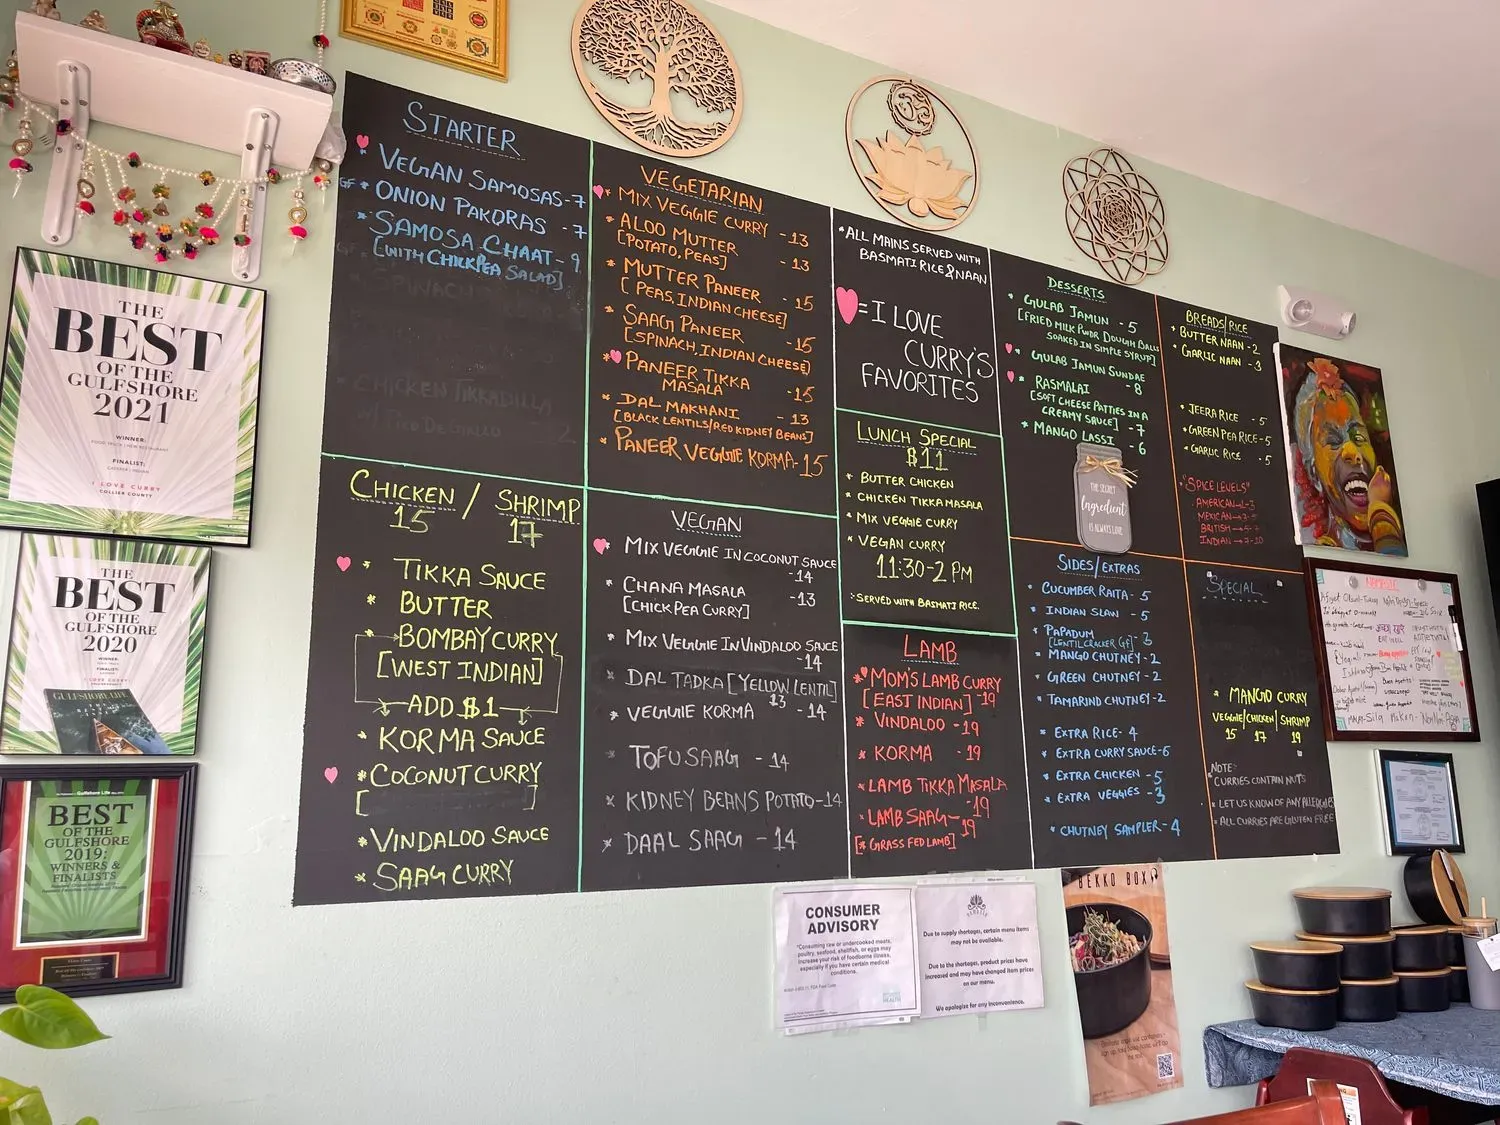 STARTER
VEGAN SAMOSAS-7
GF * ONION PAKORAS - 7
* SAMOSA CHAAT - 9
[WITH CHICKPEA SALAD]
CHICKEN / SHRIMP
15 17
* TIKKA SAUCE
* BUTTER
* BOMBAY CURRY
[WEST INDIAN]
ADD $1
* KORMA SAUCE
* COCONUT CURRY
[ ]
* VINDALOO SAUCE
* SAAG CURRY
VEGETARIAN
* MIX VEGGIE CURRY - 13
* ALOO MUTTER
[POTATO, PEAS] - 13
* MUTTER PANEER - 15
[PEAS, INDIAN CHEESE]
* SAAG PANEER - 15
[SPINACH, INDIAN CHEESE]
* PANEER TIKKA
MASALA - 15
* DAL MAKHANI - 13
[BLACK LENTILS/RED KIDNEY BEANS]
* PANEER VEGGIE KORMA-15
VEGAN
* MIX VEGGIE IN COCONUT SAUCE
-14
* CHANA MASALA -13
[CHICK PEA CURRY]
* MIX VEGGIE IN VINDALOO SAUCE
-14
* DAL TADKA [YELLOW LENTIL]
13
* VEGGIE KORMA - 14
* TOFU SAAG - 14
* KIDNEY BEANS POTATO-14
* DAAL SAAG - 14
*ALL MAINS SERVED WITH
BASMATI RICE & NAAN
= I LOVE
CURRY'S
FAVORITES
LUNCH SPECIAL
$11
* BUTTER CHICKEN
* CHICKEN TIKKA MASALA
* MIX VEGGIE CURRY
* VEGAN CURRY
11:30-2 PM
*SERVED WITH BASMATI RICE.
LAMB
* MOM'S LAMB CURRY
[EAST INDIAN] -19
* VINDALOO -19
* KORMA -19
* LAMB TIKKA MASALA
-19
* LAMB SAAG - 19
[* GRASS FED LAMB]
DESSERTS
* GULAB JAMUN - 5
[FRIED MILK PWDR DOUGH BALLS
SOAKED IN SIMPLE SYRUP]
* GULAB JAMUN SUNDAE
- 8
* RASMALAI
[SOFT CHEESE PATTIES IN A
CREAMY SAUCE] - 7
* MANGO LASSI - 6
THE SECRET
Ingredient
IS ALWAYS LOVE
SIDES/EXTRAS
* CUCUMBER RAITA - 5
* INDIAN SLAW - 5
* PAPADUM
[LENTIL CRACKER GF] - 3
* MANGO CHUTNEY - 2
* GREEN CHUTNEY - 2
* TAMARIND CHUTNEY - 2
* EXTRA RICE - 4
* EXTRA CURRY SAUCE-6
* EXTRA CHICKEN - 5
* EXTRA VEGGIES - 3
* CHUTNEY SAMPLER- 4
BREADS/RICE
* BUTTER NAAN - 2
* GARLIC NAAN - 3
* JEERA RICE - 5
* GREEN PEA RICE - 5
* GARLIC RICE - 5
*"SPICE LEVELS"
AMERICAN→1-3
BRITISH→5-7
INDIAN→7-10
SPECIAL
* MANGO CURRY
VEGGIE/CHICKEN/SHRIMP
15 17 19
NOTE:
* CURRIES CONTAIN NUTS
* LET US KNOW OF ANY ALLERGIES
* ALL CURRIES ARE GLUTEN FREE
THE
BEST
OF THE
GULFSHORE
2021
WINNER:
FOOD TRUCK / NEW RESTAURANT
FINALIST:
I LOVE CURRY
COLLIER COUNTY
THE
BEST
OF THE
GULFSHORE
2020
WINNER:
GULFSHORE LIFE
BEST
OF THE
GULFSHORE
2019:
WINNERS &
FINALISTS
CONSUMER
ADVISORY
"Consuming raw or undercooked meats,
poultry, seafood, shellfish, or eggs may
increase your risk of foodborne illness,
especially if you have certain medical
conditions.
Due to supply shortages, certain menu items
may not be available.
Due to the shortages, product prices have
increased and may have changed item prices
on our menu.
We apologize for any inconvenience.
BEKKO BOX
NAMASTE